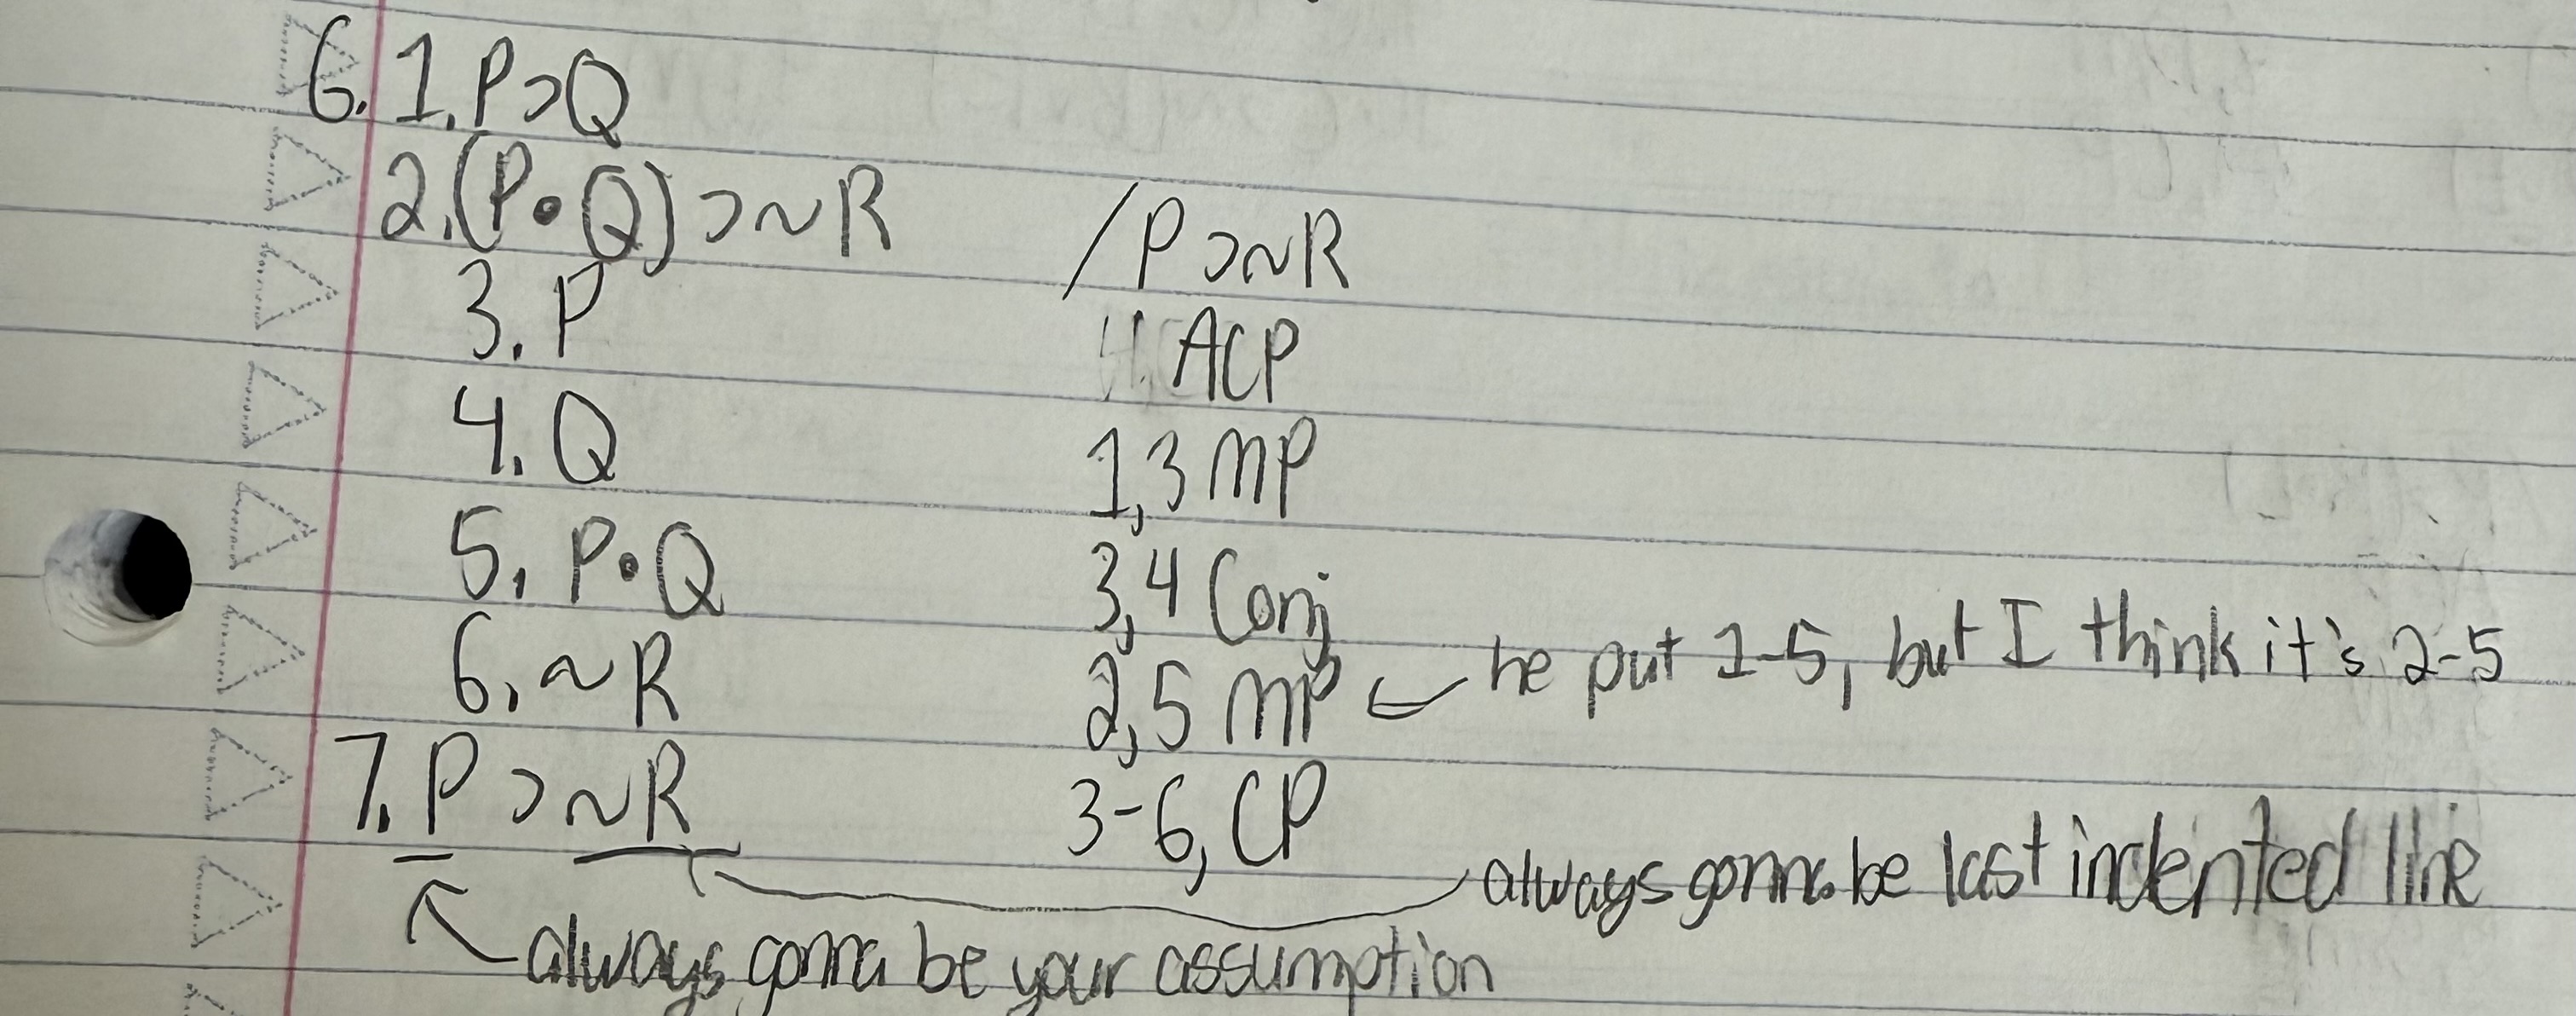 6. 1. P⊃Q
2. (P•Q)⊃~R /P⊃~R
3. P ACP
4. Q 1,3 MP
5. P•Q 3,4 Conj
6. ~R 2,5 MP ← he put 1-5, but I think it's 2-5
7. P⊃~R 3-6, CP
always gonna be last indented line
always gonna be your assumption